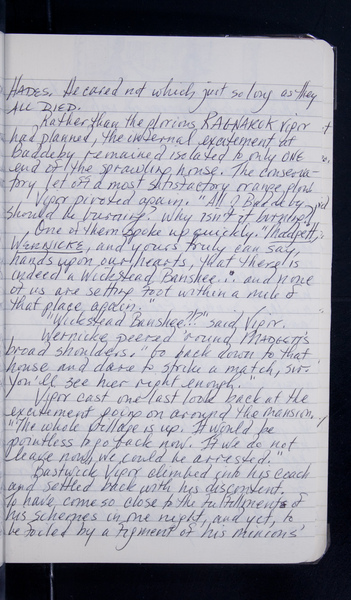 HADES. He cared not which, just so long as they
ALL DIED.
Rather than the glorious RAGNAROK Vipor
had planned, the infernal excitement at
Baddeby remained isolated to only ONE
end of the sprawling house. The conserva-
tory let off a most satisfactory orange glow.
Vipor pivoted again. "All of Baddeby
should be burning! Why isn't it burning?"
One of them spoke up quickly. "Madgett,
WERNICKE, and yours truly can say,
hands upon our hearts, that there is
indeed a Wickstead Banshee... and none
of us are setting foot within a mile of
that place again."
"Wickstead Banshee?!?" said Vipor.
Wernicke peered 'round MADGETT'S
broad shoulders. "Go back down to that
house and dare to strike a match, sir.
You'll see her right enough."
Vipor cast one last look back at the
excitement going on around the mansion.
"The whole village is up. It would be
pointless to go back now. If we do not
leave now, we could be arrested."
Bastwick Vipor climbed into his coach
and settled back with his discontent.
To have come so close to the fulfillment of
his schemes in one night, and yet, to
be foiled by a figment of his minions'